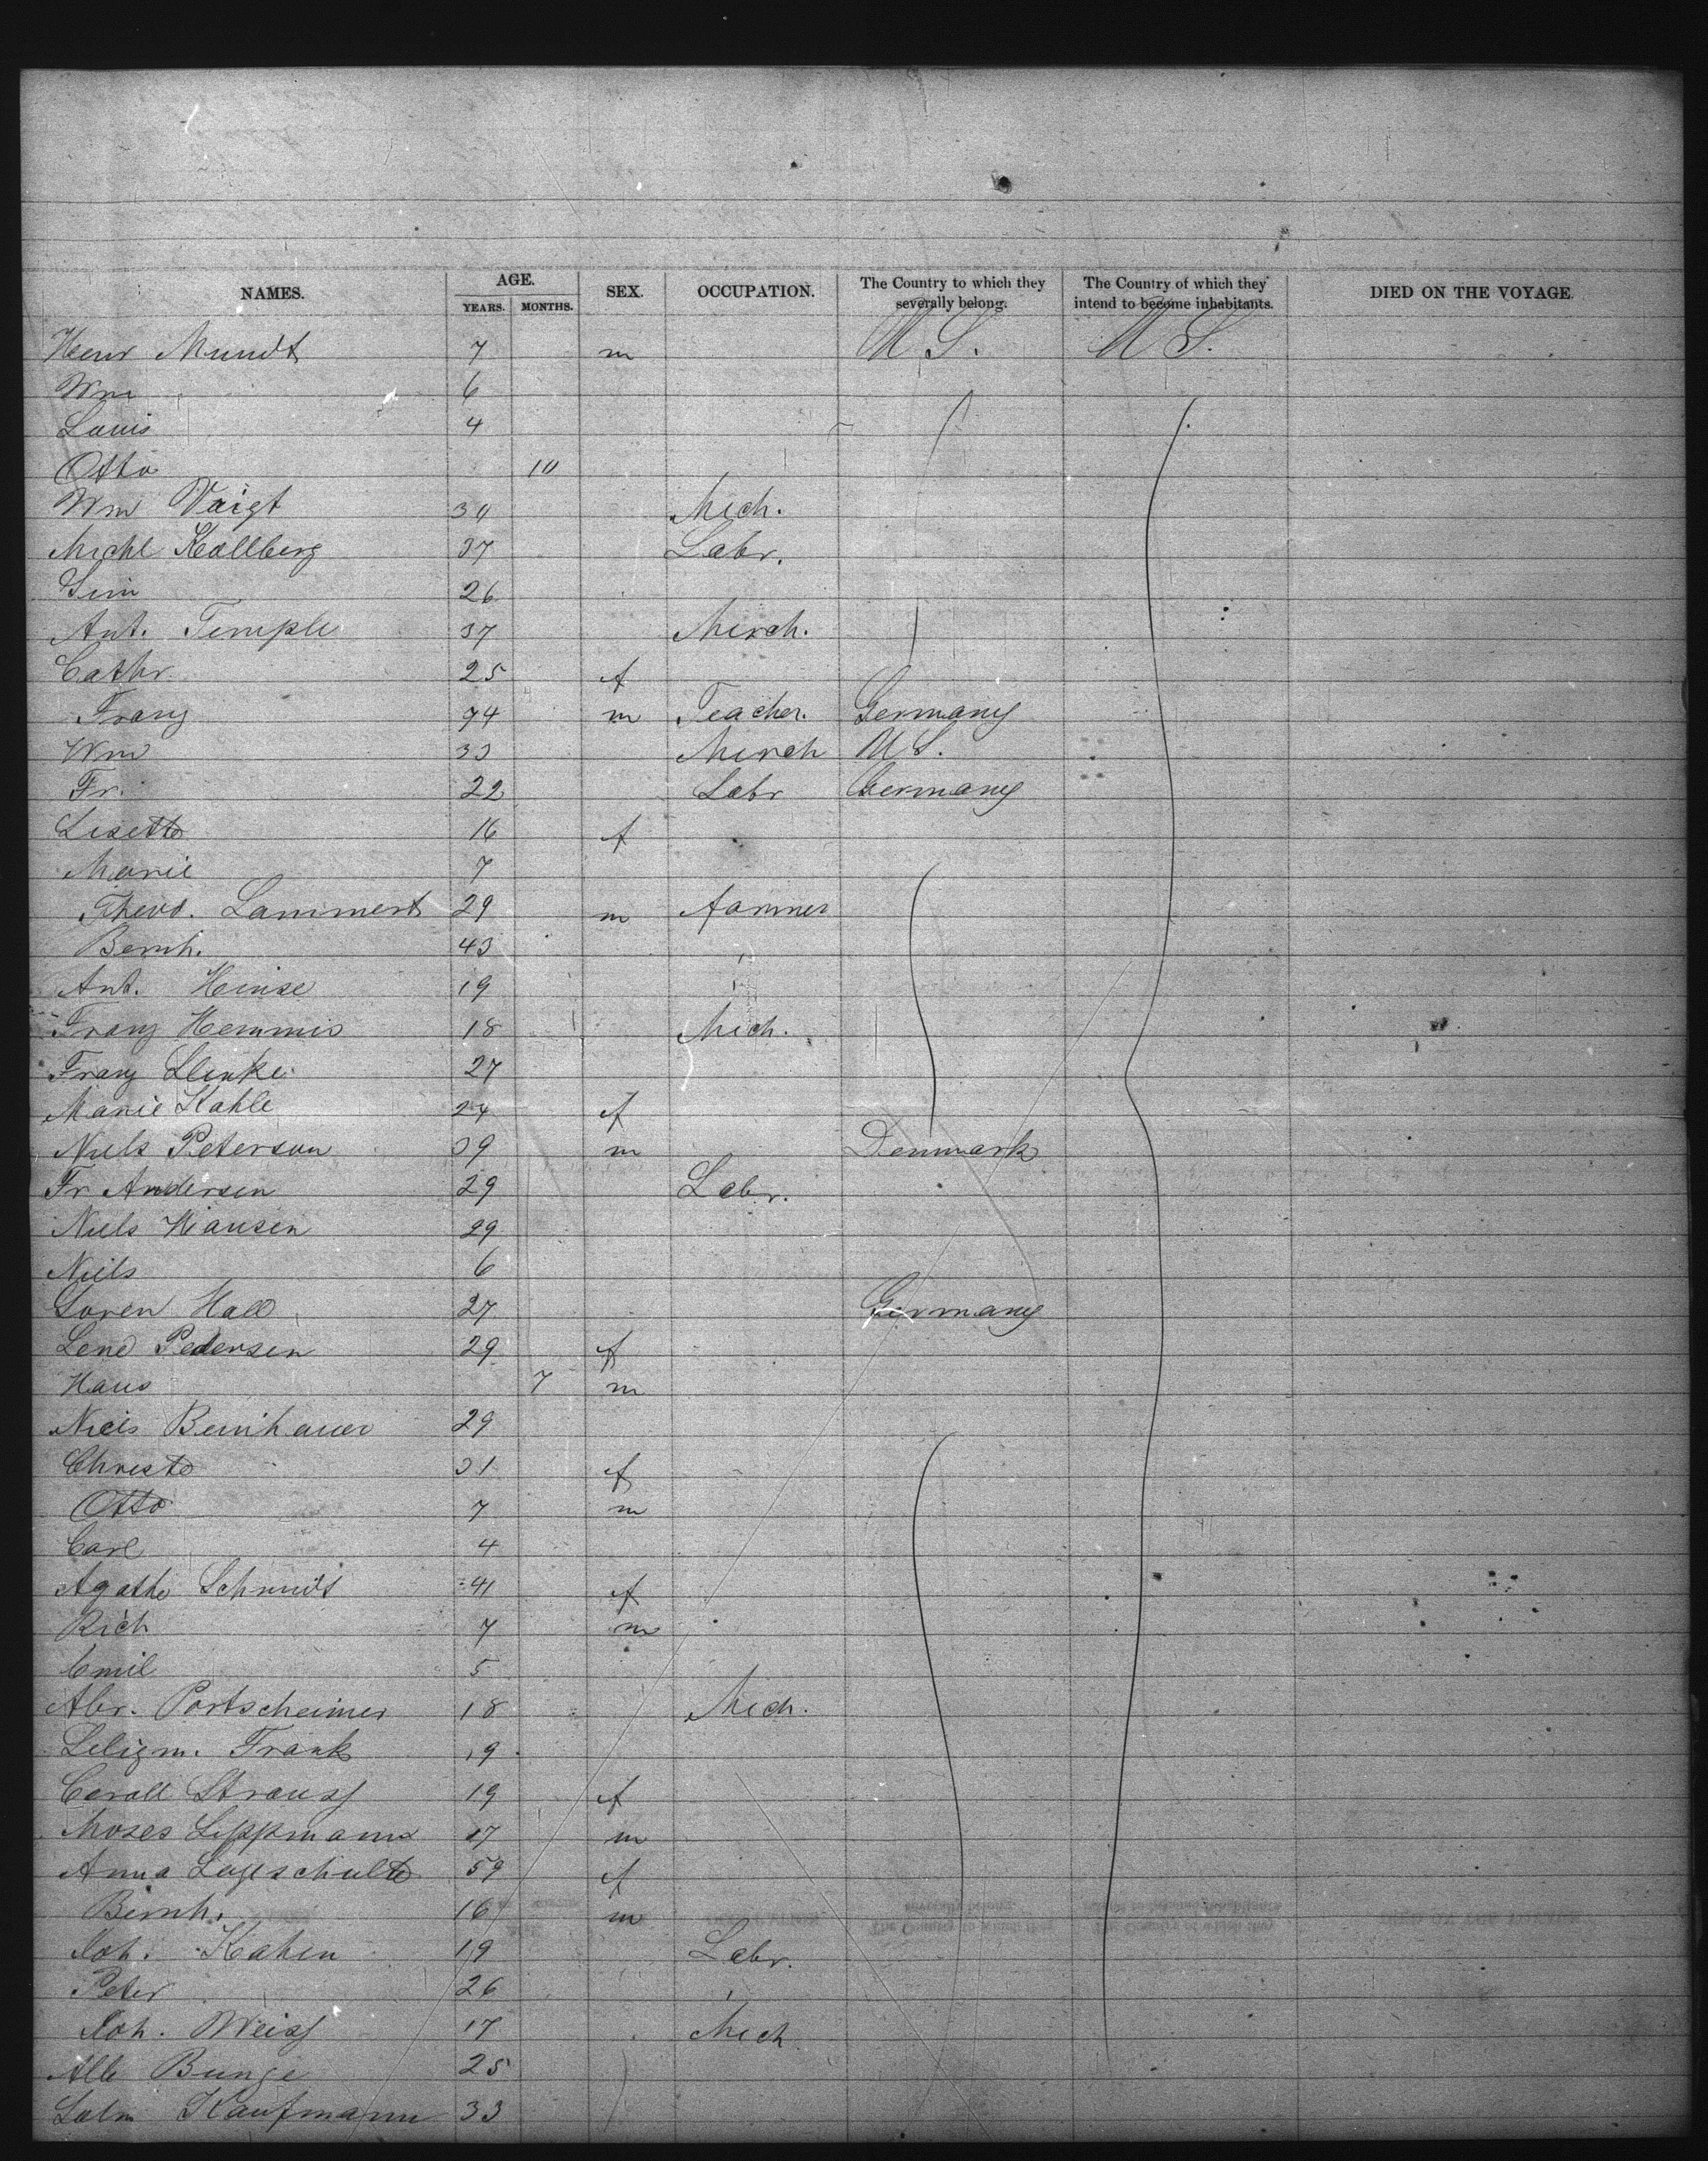 NAMES. AGE. SEX. OCCUPATION. The Country to which they severally belong. The Country of which they intend to become inhabitants. DIED ON THE VOYAGE.
YEARS. MONTHS.
Henr Mundt 7 m U S. U S.
Wm 6
Louis 4
Otto 10
Wm Voigt 34 Mech.
Michl Kallberg 37 Labr.
26
Ant. Temple 37 Merch.
Cathr. 25 f
Franz 74 m Teacher. Germany
Wm 33 Merch U S.
Fr. 22 Labr Germany
Lisette 16 f
Marie 7
Theod. Lammers 29 m farmer
Bernh. 43
Ant. Heinse 19
Franz Hemmis 18 Mech.
Franz 27
Marie Kahle 24 f
Niels Peterson 39 m Denmark
Fr Andersen 29 Labr.
Niels Hansen 29
Niels 6
Soren Hall 27 Germany
Lene Pedersen 29 f
Hans 7 m
Niels 29
Christe 31 f
Otto 7 m
Carl 4
Agathe Schmidt 41 f
Rich 7 m
Emil 5
Abr. Portscheimer 18 Mech.
Seligm. Frank 19
Caroll Strauss 19 f
Moses Lippmann 17 m
Anna Logeschulte 59 f
Bernh. 16 m
Joh. Kahen 19 Labr.
Peter 26
Joh. Weiss 17 Mech
Alb Bunge 25
Salm Kaufmann 33